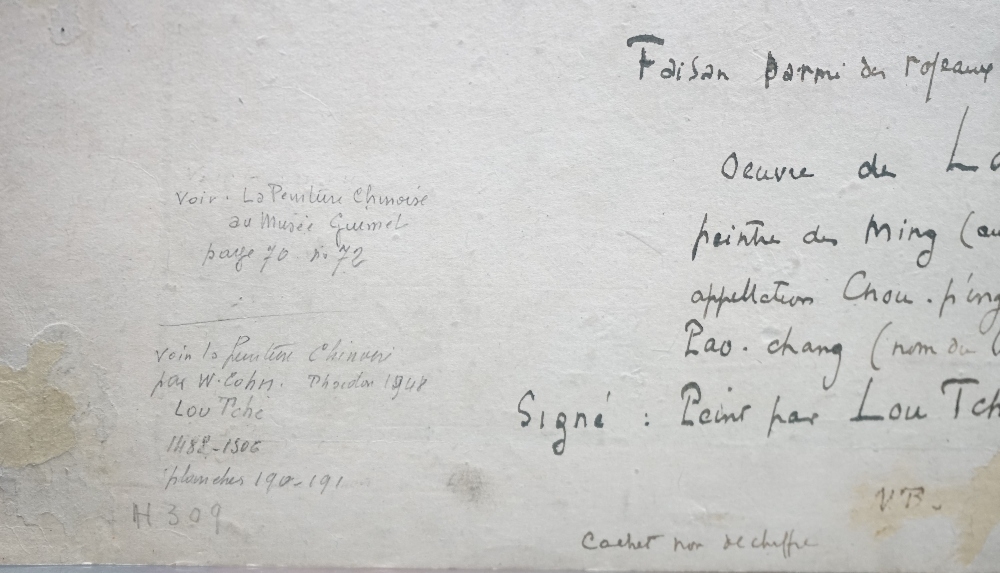 Faisan parmi des roseaux
Oeuvre de Lo
peintre des Ming (au
appellation Chou-p'ing
Pao-chang (nom du
Signé : Peint par Lou Tch
V B.
Cachet non dechiffré
voir. La Peinture Chinoise
au Musée Guimet
page 70 n° 72
voir la peinture Chinoise
par W. Cohn. Phaidon 1948
Lou Tche
1488-1506
planches 190-191
H 309